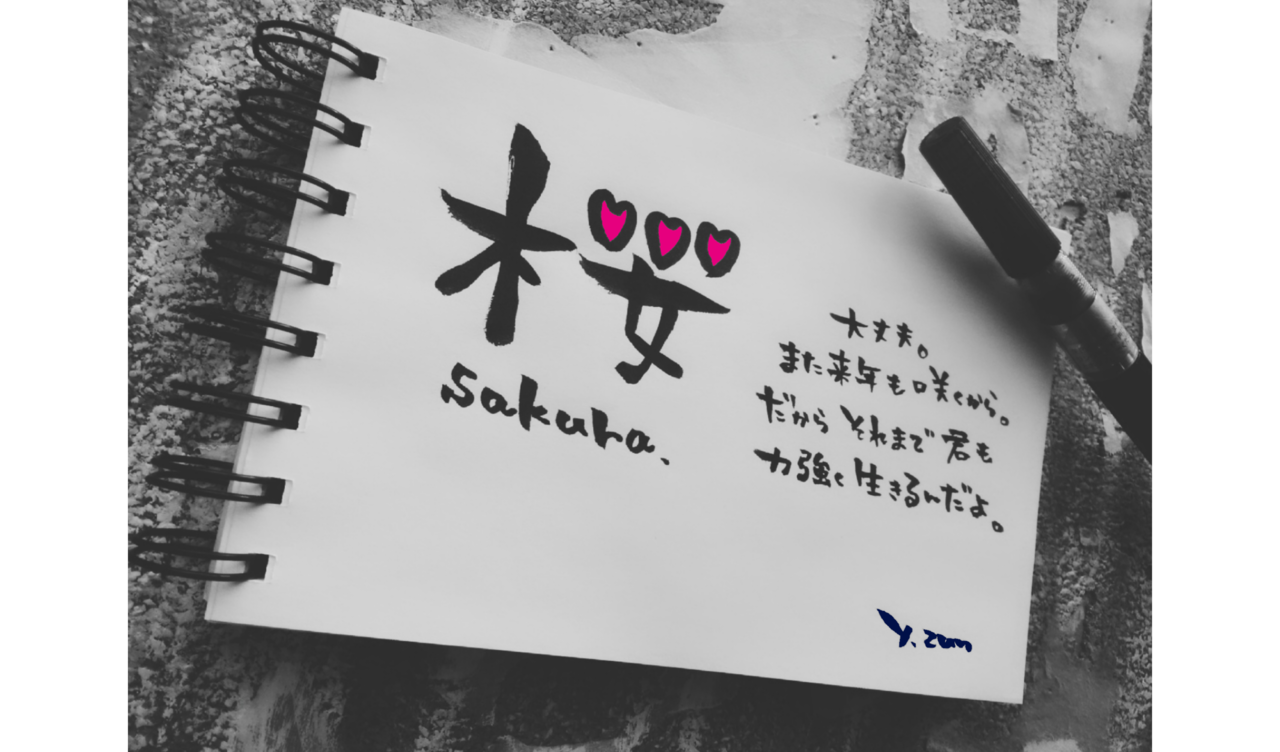 桜
sakura.
大丈夫。
また来年も咲くから。
だから それまで 君も
力強く 生きるんだよ。
y.zen